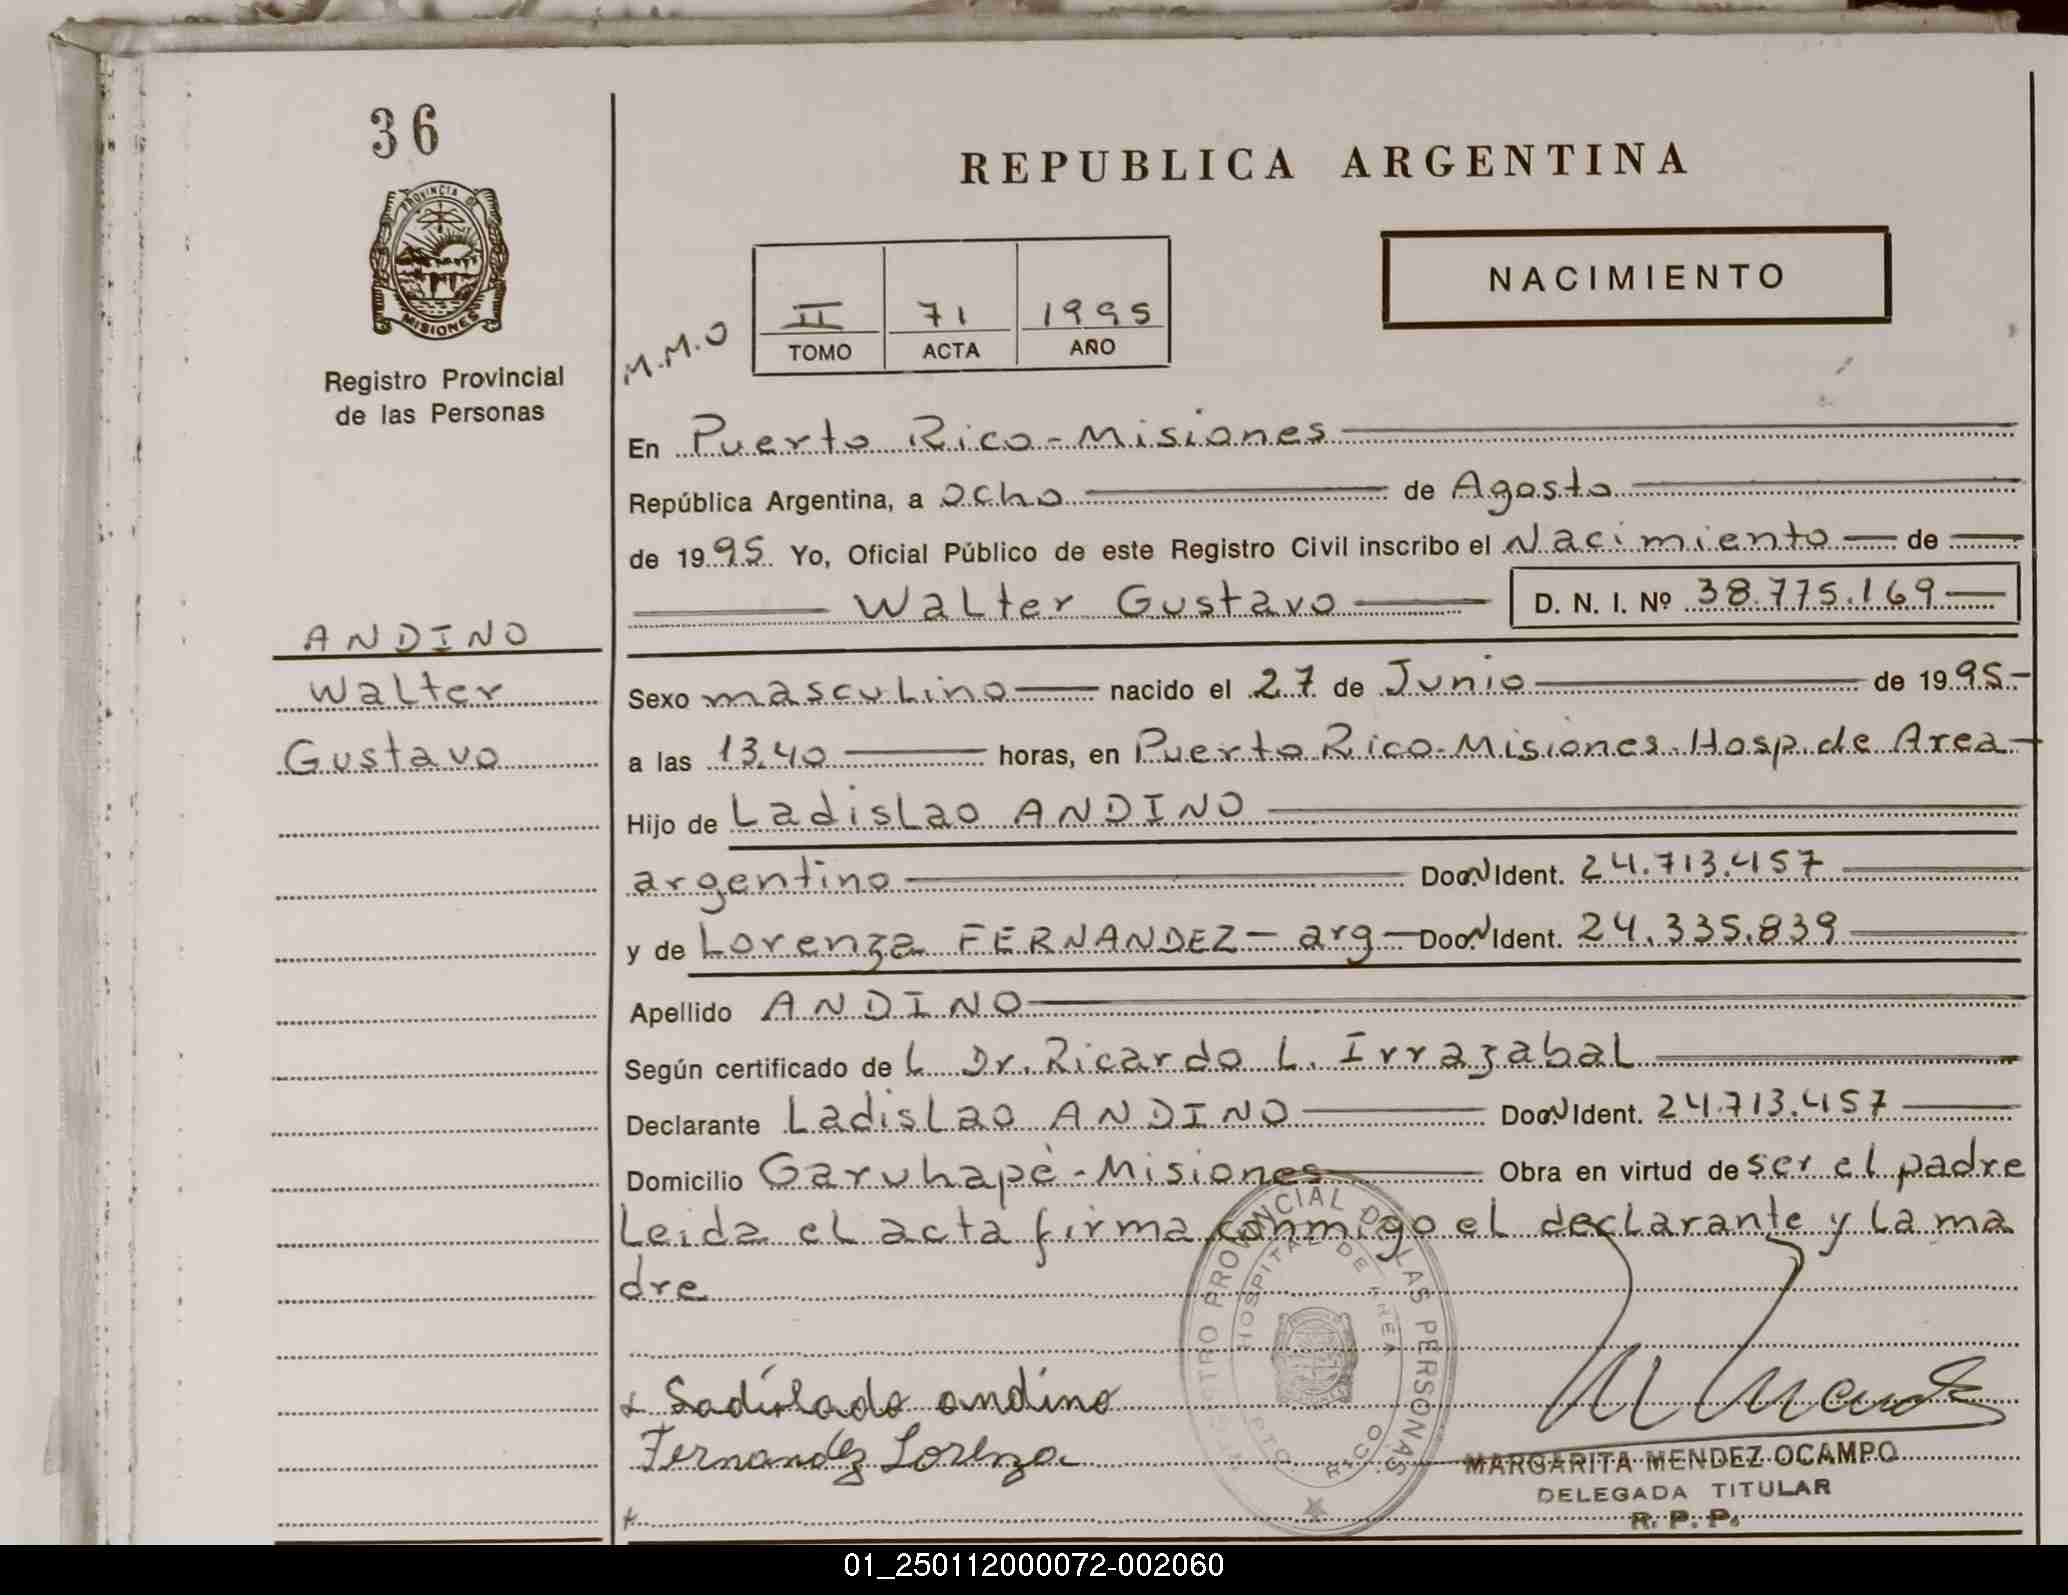 36
PROVINCIA DE
MISIONES
Registro Provincial
de las Personas
ANDINO
Walter
Gustavo
REPUBLICA ARGENTINA
NACIMIENTO
M.M.O
II 71 1995
TOMO ACTA AÑO
En Puerto Rico-Misiones
República Argentina, a ocho de Agosto
de 1995 Yo, Oficial Público de este Registro Civil inscribo el Nacimiento de
Walter Gustavo D. N. I. Nº 38.775.169
Sexo masculino nacido el 27 de Junio de 1995
a las 13,40 horas, en Puerto Rico-Misiones-Hosp.de Area
Hijo de Ladislao ANDINO
argentino Doc. Ident. 24.713.457
y de Lorenza FERNANDEZ - arg - Doc. Ident. 24.335.839
Apellido ANDINO
Según certificado de L Dr. Ricardo L. Irrazabal
Declarante Ladislao ANDINO Doc. Ident. 24.713.457
Domicilio Garuhapé-Misiones Obra en virtud de ser el padre
Leida el acta firma conmigo el declarante y la ma
dre
REGISTRO PROVINCIAL DE LAS PERSONAS
HOSPITAL DE AREA
PTO. RICO
Sadislado andino
Fernandez Lorenza
M Mendez
MARGARITA MENDEZ OCAMPO
DELEGADA TITULAR
R. P. P.
01_250112000072-002060